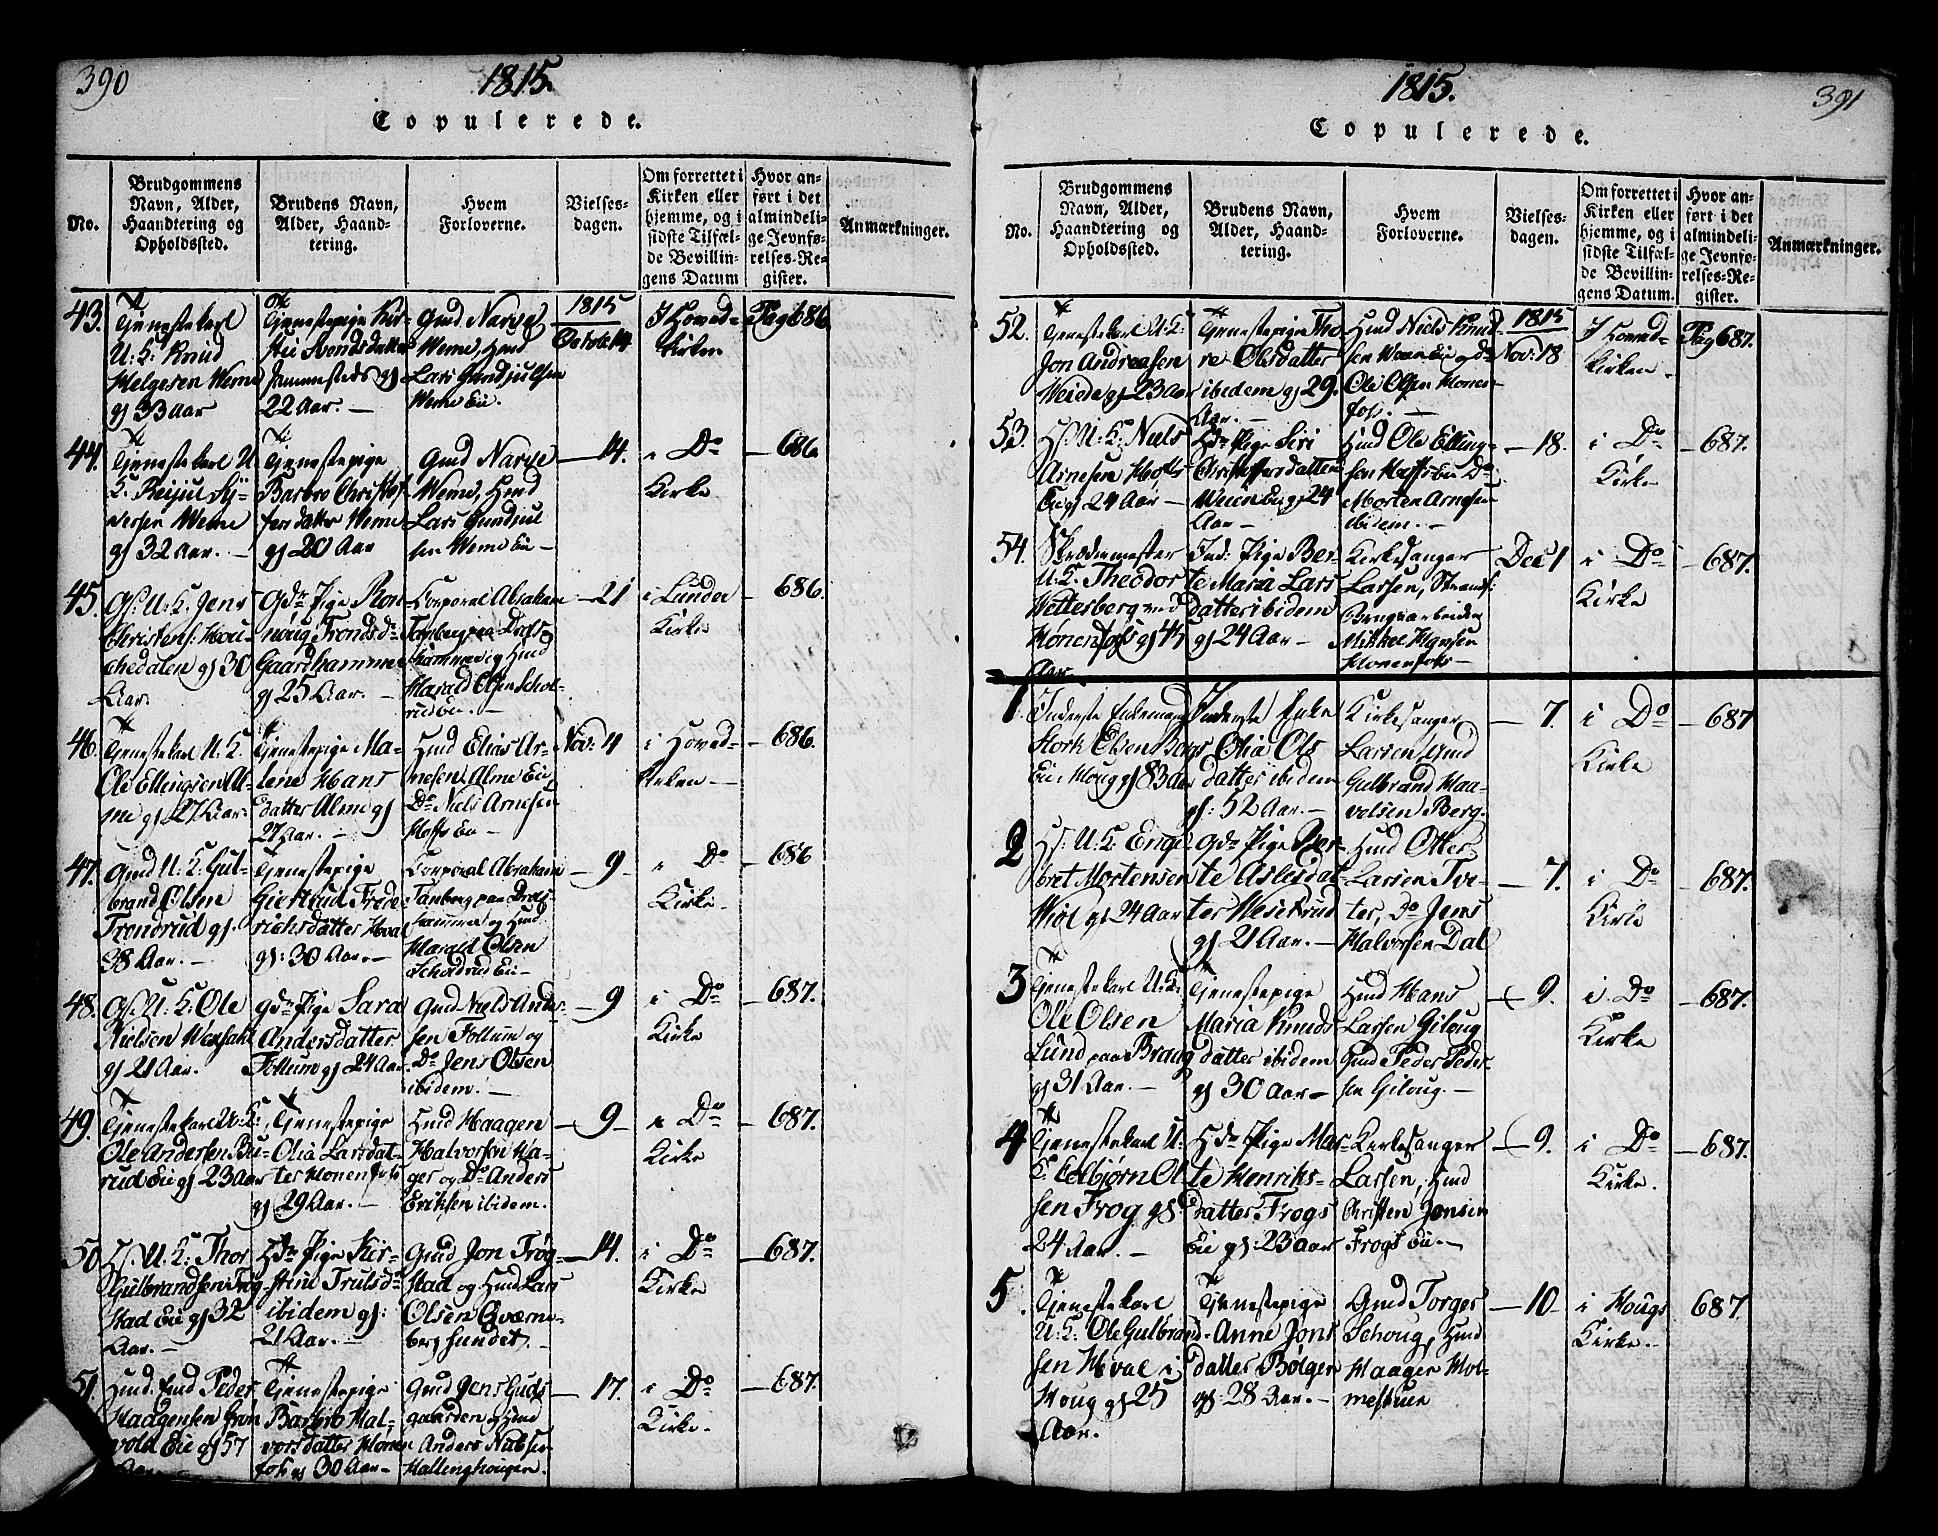 390
1815.
Copulerede.
No.
Brudgommens
Navn, Alder,
Haandtering og
Opholdssted.
Brudens Navn,
Alder, Haand-
tering.
Hvem
Forloverne.
Vielses-
dagen.
Om forrettet i
Kirken eller
hjemme, og i
sidste Tilfæl-
de Bevillin-
gens Datum
Hvor an-
ført i det
almindeli-
ge Jevnfø-
relses-Re-
gister.
Anmærkninger.
43.
Tjenestekarl
U: K: Knud
Helgesen Werme
gl 33 Aar
Tjenestepige Kir-
sti Svendsdatter
sammesteds gl
22 Aar. —
Gmd. Narve
Werme, Hmd
Lars Gundjulsen
Werme Eie.
1815
Octob: 14
I Hoved-
Kirken
Pag 686
44.
Tjenestekarl U
K: Reijul
Werme
gl 32 Aar. —
Tjenestepige
Barbro Christof-
fersdatter Werme
gl 20 Aar
Gmd Narve
Werme, Hmd
Lars Gundjul
sen Werme Eie —
— 14.
i Do
Kirke
— 686
45.
Gs: U: K: Jens
Christens: Hou-
chedalen gl 30
Aar.
Gdr Pige Ron-
noug Trondsdr
Gaardhammer
gl 25 Aar. —
Corporal Abraham
Tanberg paa Drols
hammer og Hmd
Harald Olsen Schol-
rud Eie. —
— 21
i Lunder
Kirke
— 686.
46.
Tjenestekarl U. K.
Ole Ellingsen Al-
me gl 27 Aar.
Tjenestepige Ma-
lene Hans
datter Alme gl
27 Aar. —
Hmd Elias Ar-
nesen Alme Eie
Do Niels Arnesen
Hoffs Eie —
Nov: 4
i Hoved-
Kirken —
— 686.
47.
Gmd U: K: Gul-
brand Olsen
Trondrud gl.
38 Aar. —
Tjenestepige
Giertrud Frede-
richsdatter Hval
gl: 30 Aar. —
Corporal Abraham
Tanberg paa Drols-
hammer og Hmd
Harald Olsen
Scholrud Eie —
— 9
i Do
Kirke
— 686
48.
Gs: U: K: Ole
Nielsen
gl 21 Aar.
Gdr Pige Sara
Andersdatter
Follum gl 24 Aar.
Gmd Niels Ander-
sen Follum og
Do Jens Olsen
ibidem. —
— 9
i Do
Kirke
— 687.
49.
Tjenestekarl U: K:
Ole Andersen Bu-
rud Eie gl 23 Aar
Tjenestepige
Olia Larsdat-
ter Honenfos
gl 29 Aar. —
Hmd Haagen
Halvorsen Ha-
ger og Do Anders
Eriksen ibidem.
— 9 —
i Do
Kirke
— 687.
50
Hs. U: K: Thor
Gulbrandsen Frøg-
stad Eie gl 32
Aar. —
Hdr Pige Kir-
stine Trulsdr
ibidem gl:
21 Aar. —
Gmd Jon Frøg-
stad og Hmd Lars
Olsen Qværne-
berg sundet. —
— 14.
i Do
Kirke
— 687.
51.
Hmd. Emd Peder
Haagensen Grøn
vold Eie gl 57
Aar —
Tjenestepige
Barbro Hal-
vorsdatter Høne
fos gl 30 Aar —
Gmd Jens Guls
gaarden og Hmd
Anders Nubsen
Hallinghougen.
— 17.
i Do
Kirke. —
— 687.
1815.
391
Copulerede.
No.
Brudgommens
Navn, Alder,
Haandtering og
Opholdssted.
Brudens Navn,
Alder, Haand-
tering.
Hvem
Forloverne.
Vielses-
dagen.
Om forrettet i
Kirken eller
hjemme, og i
sidste Tilfæl-
de Bevillin-
gens Datum.
Hvor an-
ført i det
almindeli-
ge Jevnfø-
relses-Re-
gister.
Anmærkninger.
52.
Tjenestekarl U: K:
Jon Andreasen
Weiede gl 23 Aar
Tjenestepige Tho-
re Olsdatter
ibidem gl 29.
Aar. —
Hmd Niels Knud-
sen Weien Eie og Do
Ole Olsen Hønen-
fos. —
1815
Nov: 18
I Hoved-
Kirken —
Pag 687.
53.
Hs: U: K: Niels
Arnesen Hoffs
Eie gl 24 Aar —
Hdr Pige Siri
Christoffersdatter
Weien Eie gl 24
Aar —
Hmd Ole Elling-
sen Hoffs Eie Do
Morten Arnesen
ibidem. —
— 18.
i Do
Kirke
— 687.
54.
Skrædermester
U: K: Theodor
Wettersberg ved
Hønenfos gl 47
Aar. —
Ind: Pige Ber-
te Maria Lars
datter ibidem
gl 24 Aar —
Kirkesanger
Larsen,
Mikkel Hansen
Honenfos —
Dec 1
i Do
Kirke
— 687.
1.
Inderste Enkemand
Stork Olsen Bergs
Eie i Houg gl 83 Aar
Inderste Enke
Olia Ols
datter ibidem
gl: 52 Aar. —
Kirkesanger
Larsen, Gmd
Gulbrand Haa-
velsen Berg.
— 7.
i Do
Kirke
— 687
2
Hs: U: K: Enge-
bret Mortensen
Hiøl gl 24 Aar
Gdr Pige Ber-
te Aslesdat-
ter Wesetrud
gl 21 Aar. —
Hmd Otter
Larsen Tve-
ter, Do Jens
Halvorsen Dal
— 7.
i Do
Kirke
— 687.
3
Tjenestekarl U: K:
Ole Olsen
Lund paa Braug
gl 31 Aar. —
Tjenestepige
Maria Knuds
datter ibidem
gl 30 Aar —
Hmd Hans
Larsen Giloug
Gmd Peder Peder-
sen Giloug. —
— 9.
i Do
Kirke
— 687.
4
Tjenestekarl U:
K: Esbjørn Ol-
sen Frog gl
24 Aar. —
Hdr Pige Mar-
te Henriks-
datter Frogs
Eie gl: 23 Aar
Kirkesanger
Larsen, Hmd
Christen Jonsen
Frogs Eie. —
— 9.
i Do
Kirke.
— 687.
5.
Tjenestekarl
U: K: Ole Gulbrand-
sen Hval i
Houg gl 25
Aar.
Tjenestepige
Anne Jons
datter Bølgen
gl: 28 Aar. —
Gmd Torger
Schoug, Hmd
Haager Hol-
mestuen
— 10
i Hougs
Kirke. —
687.